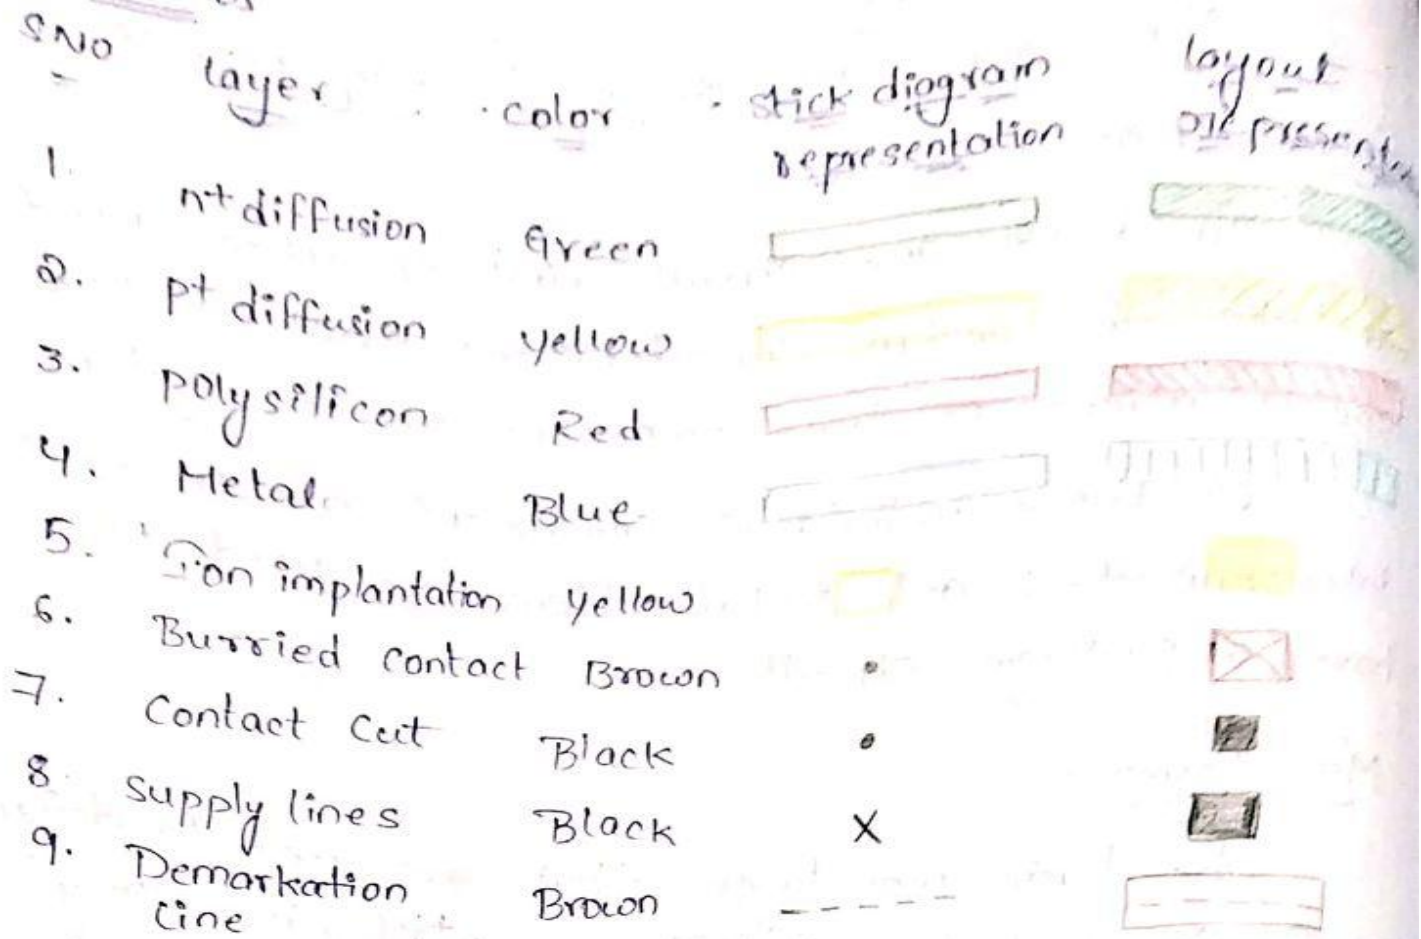 SNO layer color stick diagram representation layout
1. n+ diffusion Green
2. p+ diffusion yellow
3. polysilicon Red
4. Metal Blue
5. Ion implantation yellow
6. Burried contact Brown
7. Contact Cut Black
8 supply lines Black X
9. Demarkation line Brown